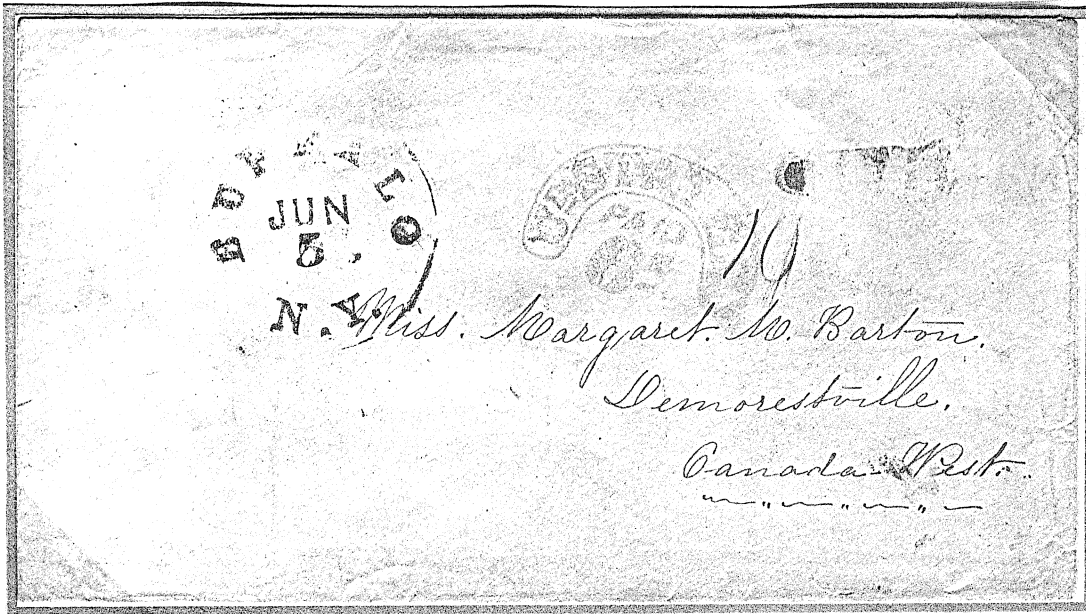 BUFFALO
JUN
5
N.Y.
PAID
10
Miss. Margaret. M. Barton.
Demorestville.
Canada West.